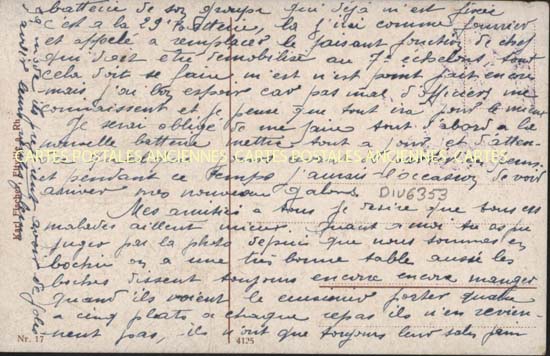 batterie de son groupe qui déjà m'est fixée
c'est à la 29e Batterie, là j'irai comme fourrier
et appelé à remplacer le faisant fonction de chef
qui doit être démobilisé au 7e échelon, tout
cela doit se faire m'est n'est point fait encore
mais j'ai bon espoir car pas mal d'officiers me
connaissent et je pense que tout ira pour le mieux
Je serai obligé de me faire tout d'abord à la
nouvelle batterie mettre tout à jour et d'atten-
et pendant ce temps j'aurais l'occasion de voir
arriver mes nouveaux galons
DIV6353
Mes amitiés à tous je désire que tous les
malades aillent mieux. Quant à moi tu as pu
juger par la photo depuis que nous sommes en
bochie on a une très bonne table aussi les
boches disent toujours encore encore manger
quand ils voient le cuisinier porter quatre
à cinq plats à chaque repas ils n'en revien-
nent pas, ils n'ont que toujours leur sale pain
CARTES POSTALES ANCIENNES CARTES POSTALES ANCIENNES CARTES
Karl Fischer, Rh.
Nr. 17
4125